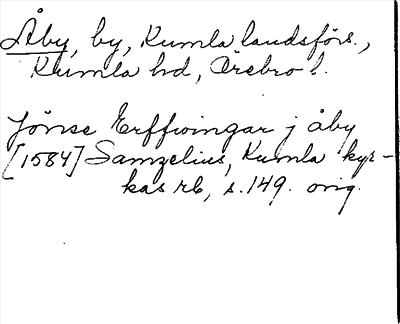 Åby, by, Kumla landsförs.,
Kumla hd, Örebro l.
Jönse Erffwingar j åby
[1584] Samzelius, Kumla kyr-
kas rb, s. 149. orig.